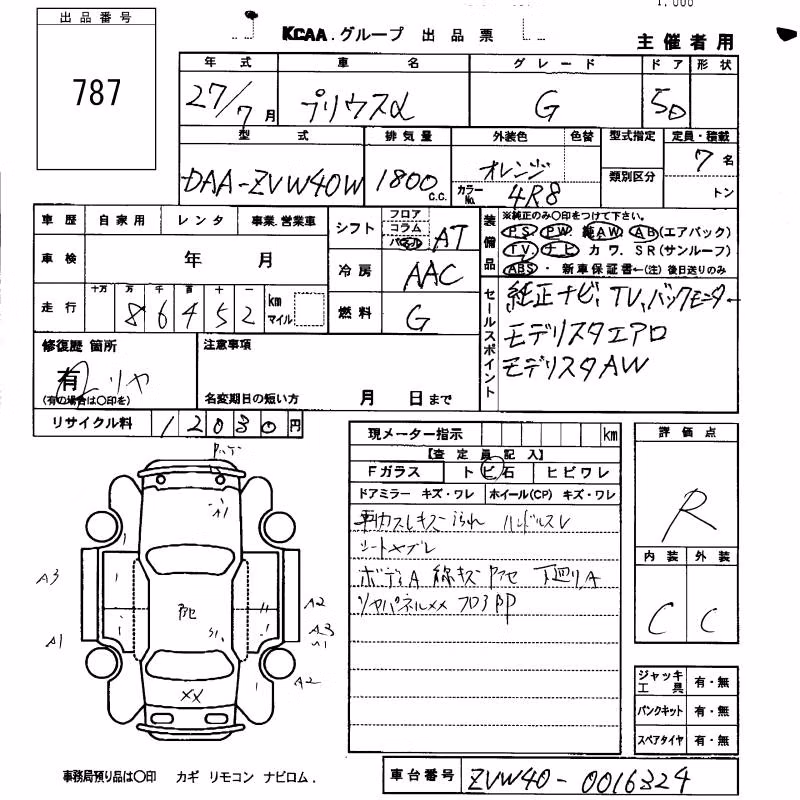 出品番号
787
KCAA.グループ 出品票
主催者用
年式 車名 グレード ドア 形状
27/7月 プリウスα G 5D
型式 排気量 外装色 色替 型式指定 定員・積載
DAA-ZVW40W 1800 C.C. オレンジ 類別区分 7名
カラーNo. 4R8 トン
車歴 自家用 レンタ 事業.営業車
シフト フロア コラム パネル AT
装備品
※純正のみ〇印をつけて下さい。
PS PW 純AW AB(エアバック)
TV ナビ カワ.SR(サンルーフ)
ABS・新車保証書←(注)後日送りのみ
車検 年 月
冷房 AAC
走行 十万 万 千 百 十 一
86452 km マイル
燃料 G
セールスポイント
純正ナビ、TV、バックモニター
モデリスタエアロ
モデリスタAW
修復歴 箇所
有 リヤ
(有の場合は〇印を)
注意事項
名変期日の短い方 月 日まで
リサイクル料 12030円
現メーター指示 km
【査定員記入】
Fガラス トビ石 ヒビワレ
ドアミラー キズ・ワレ ホイール(CP) キズ・ワレ
ハンドルスレ
シート
ボディA 線キズ 下廻りA
リヤパネルXX フロア
評価点
R
内装 外装
C C
A3
A1
A2
A3
A1
A2
XX
ジャッキ工具 有・無
パンクキット 有・無
スペアタイヤ 有・無
事務局預り品は〇印 カギ リモコン ナビロム.
車台番号 ZVW40-0016324